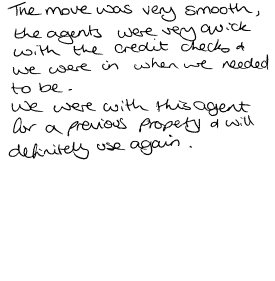 The move was very smooth,
the agents were very quick
with the credit checks &
we were in when we needed
to be.
We were with this agent
for a previous property & will
definitely use again.